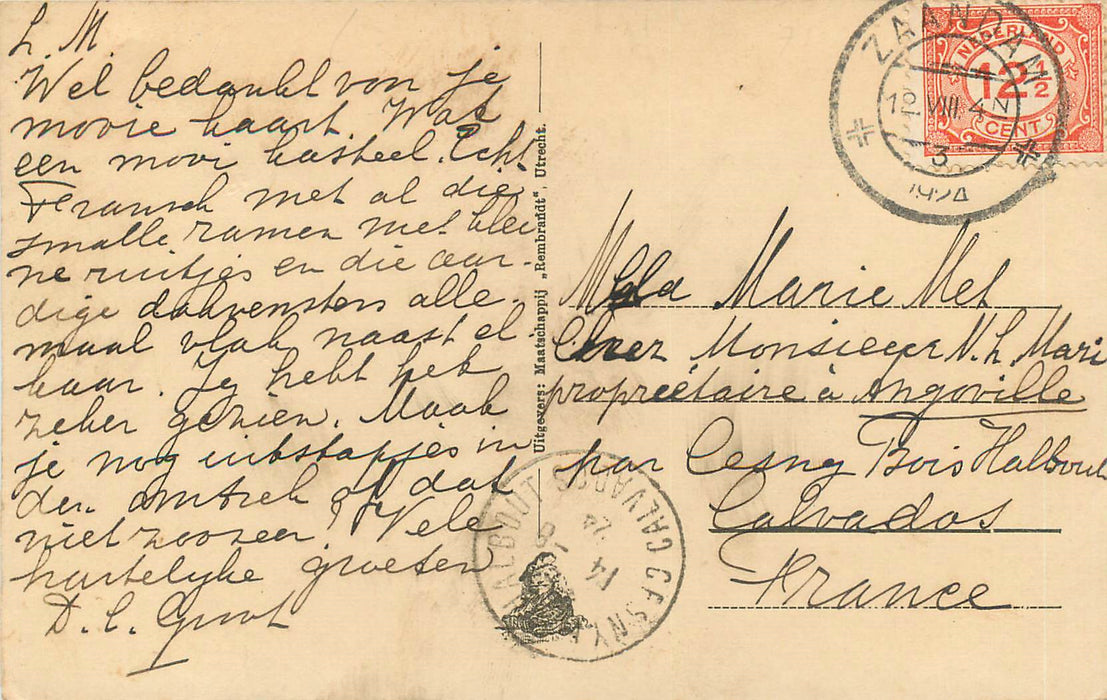 L. M.
Wel bedankt von je
mooie kaart. Wat
een mooi kasteel. Echt
Fransch met al die
smalle ramen met klei
ne ruitjes en die aar-
dige dakvensters alle-
maal vlak naast el
kaar. Jij hebt het
zeker gezien. Maak
je nog uitstapjes in
den omtrek of dat
niet zoozeer? Vele
hartelijke groeten
D. C. Groot
Uitgevers: Maatschappij „Rembrandt", Utrecht.
ZAANDAM
12 VIII 4-
3
1924
NEDERLAND
12½
CENT
Marie Met
Chez Monsieur N. L. Mari
propriétaire à Angoville
par Cesny Bois Halbout
Calvados
France
CESNY
HALBOUT
CALVADOS
14
8
24